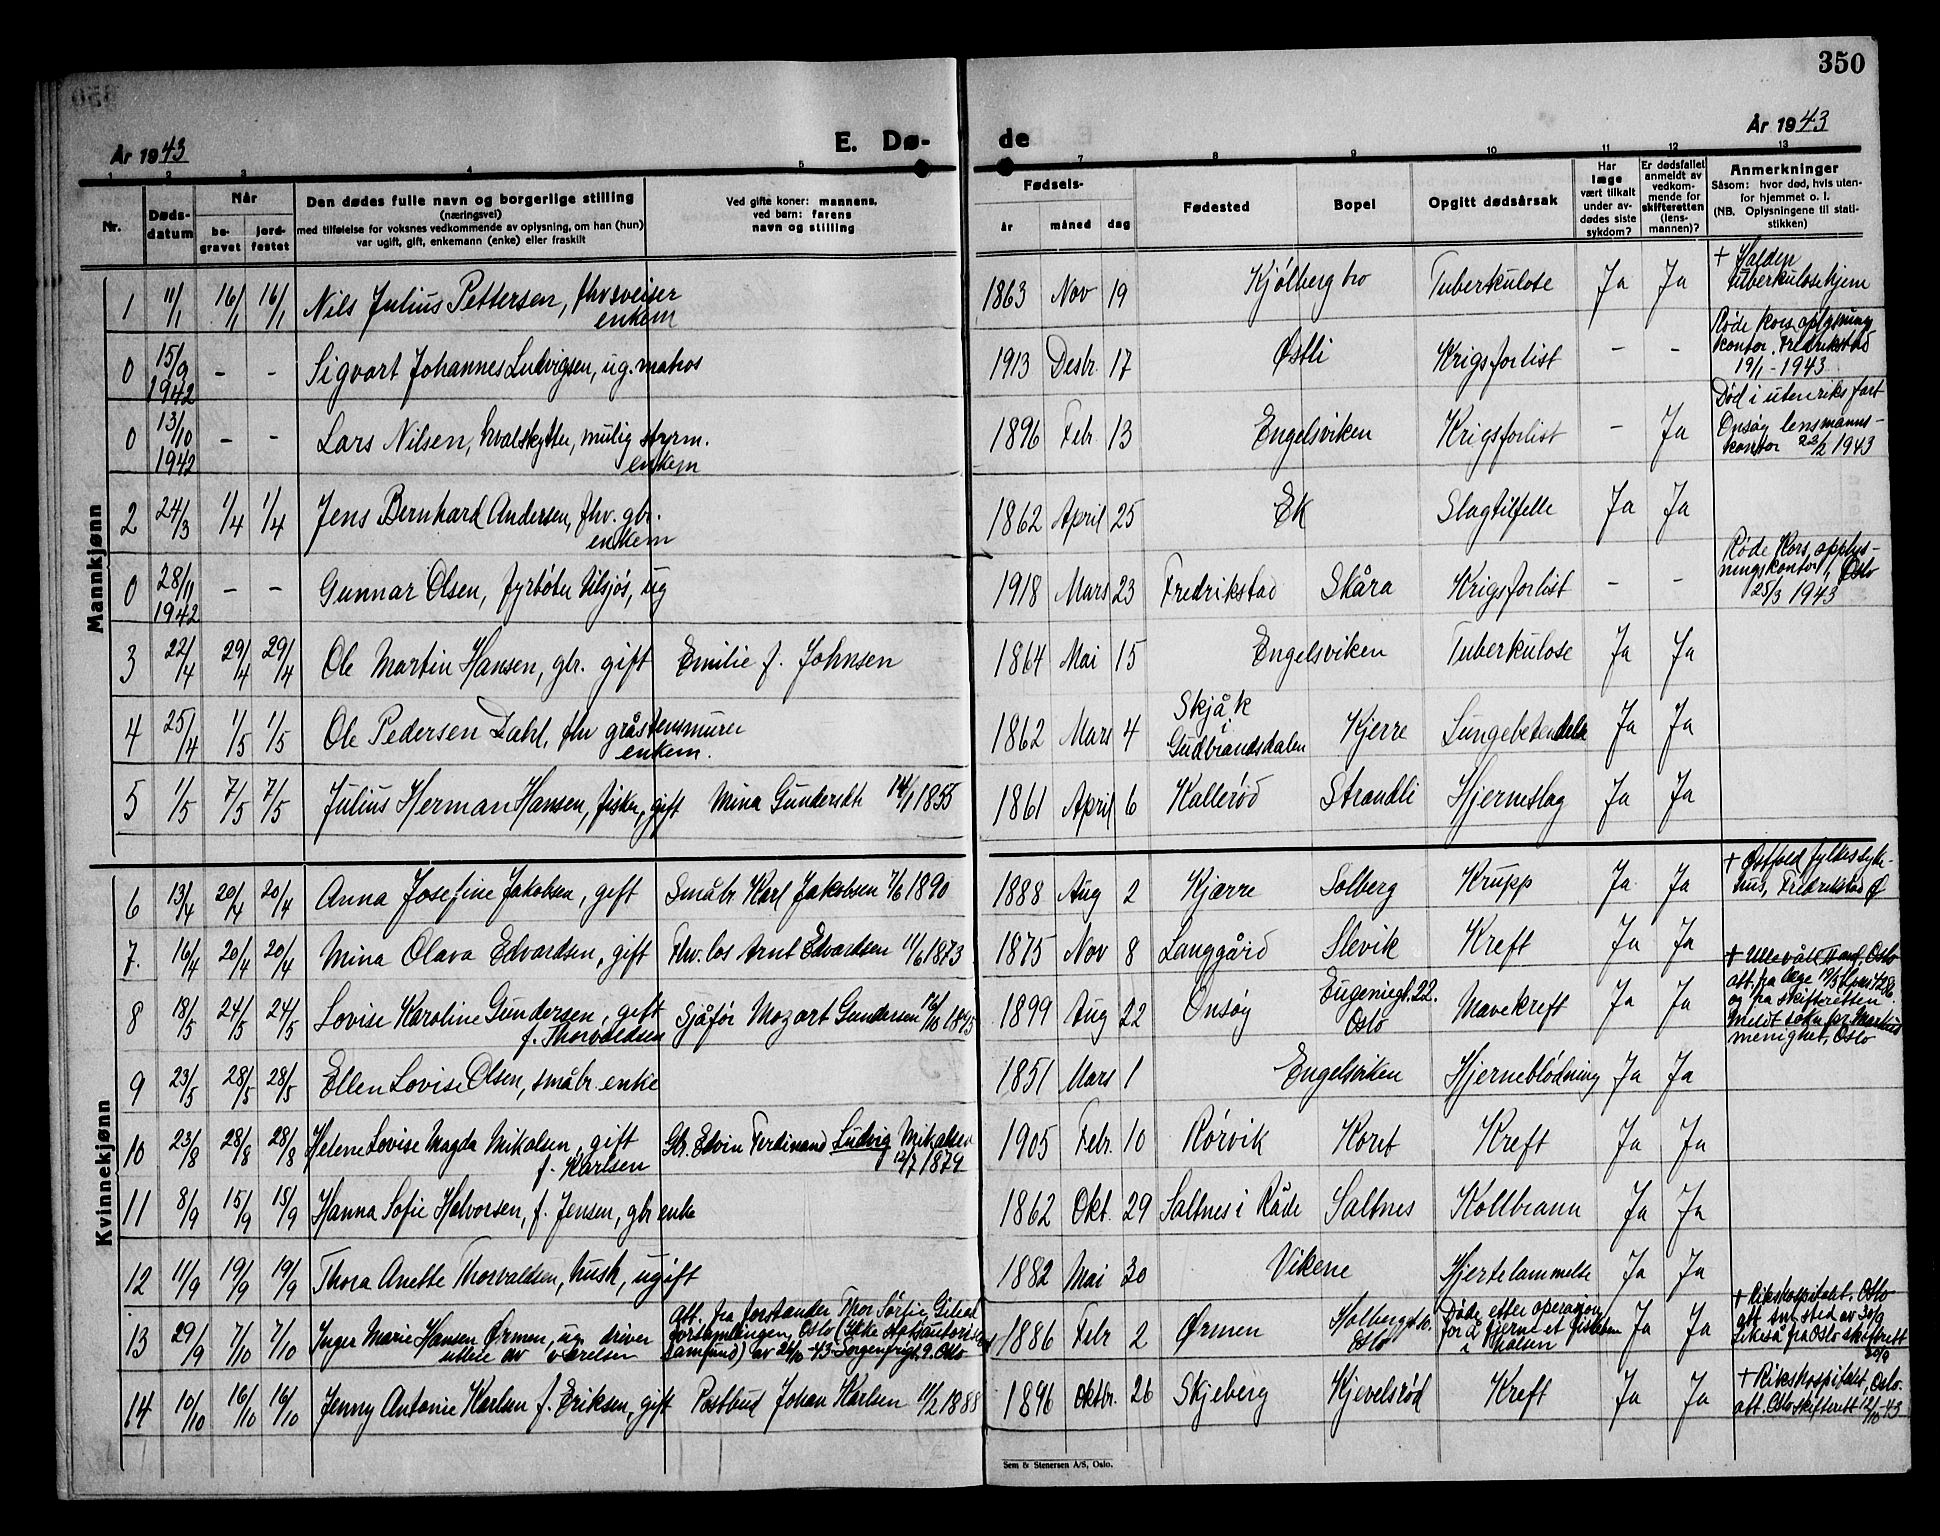 350
År 1943
E. Dø-
de
År 1943
1 2 3 4 5 7 8 9 10 11 12 13
Nr.
Døds-
datum
Når
be-
gravet
jord-
festet
Den dødes fulle navn og borgerlige stilling
(næringsvei)
med tilføielse for voksnes vedkommende av oplysning, om han (hun)
var ugift, gift, enkemann (enke) eller fraskilt
Ved gifte koner: mannens,
ved barn: farens
navn og stilling
Fødsels-
år måned dag
Fødested
Bopel
Opgitt dødsårsak
Har
læge
vært tilkalt
under av-
dødes siste
sykdom?
Er dødsfallet
anmeldt av
vedkom-
mende for
skifteretten
(lens-
mannen)?
Anmerkninger
Såsom: hvor død, hvis uten-
for hjemmet o. l.
(NB. Oplysningene til stati-
stikken)
Mannkjønn
1 11/1 16/1 16/1 Nils Julius Pettersen, fhv sveiser
enkem
1863 Nov 19 Kjølberg bro Tuberkulose Ja Ja
+ Halden
tuberkulosehjem
0 15/9 1942 - - Sigvart Johannes Ludvigsen, ug. matros
1913 Desbr. 17 Østli Krigsforlist - -
Røde Kors oplysning
kontor, Fredrikstad
19/1 - 1943
0 13/10 1942 - - Lars Nilsen, hvalskytter, mulig styrm.
enkem
1896 Febr 13 Engelsviken Krigsforlist - Ja
Død i utenriks fart
Onsøy lensmanns-
kontor 23/2 1943
2 24/3 1/4 1/4 Jens Bernhard Andersen, fhv. gbr.
enkem
1862 April 25 Ek Slagtilfelle Ja Ja
0 28/11 1942 - - Gunnar Olsen, fyrbøter tilsjøs, ug
1918 Mars 23 Fredrikstad Skåra Krigsforlist - -
Røde Kors, opplys-
ningskontor, Oslo
25/3 1943
3 22/4 29/4 29/4 Ole Martin Hansen, gbr. gift Emilie f. Johnsen
1864 Mai 15 Engelsviken Tuberkulose Ja Ja
4 25/4 1/5 1/5 Ole Pedersen Dahl, fhv gråstensmurer
enkem.
1862 Mars 4 Skjåk
i
Gudbrandsdalen Kjerre Lungebetendelse Ja Ja
5 1/5 7/5 7/5 Julius Herman Hansen, fisker, gift Mina Gundersdt 14/1 1855
1861 April 6 Kallerød Strandli Hjerneslag Ja Ja
Kvinnekjønn
6 13/4 20/4 20/4 Anna Josefine Jakobsen, gift Småbr Karl Jakobsen 7/6 1890
1888 Aug 2 Kjærre Solberg Krupp Ja Ja
+ Østfold fylkessyke-
hus, Fredrikstad Ø
7. 16/4 20/4 20/4 Mina Olava Edvardsen, gift Fhv. los Arnt Edvardsen 11/6 1873
1875 Nov 8 Langgård Slevik Kreft Ja Ja
8 18/5 24/5 24/5 Lovise Karoline Gundersen, gift
f. Thorvaldsen
Sjåfør Mozart Gundersen 12/10 1895
1899 Aug 22 Onsøy Eugeniegt. 22.
Oslo Mavekreft Ja Ja
+ Ullevål Oslo
att. fra læge 19/5
og fra skifteretten
Meldt sokn. pr. Markus
menighet, Oslo
9 23/5 28/5 28/5 Ellen Lovise Olsen, småbr. enke
1851 Mars 1 Engelsviken Hjerneblødning Ja Ja
10 23/8 28/8 28/8 Helene Lovise Magda Mikalsen, gift
f. Karlsen
Gbr. Edvin Ferdinand Ludvig Mikalsen
12/7 1879
1905 Febr. 10 Rørvik Koret Kreft Ja Ja
11 8/9 15/9 15/9 Hanna Sofie Halvorsen, f. Jensen, gbr enke
1862 Okt. 29 Saltnes i Råde Saltnes Kollbrann Ja Ja
12 11/9 19/9 19/9 Thora Anette Thorvaldsen, hush, ugift
1882 Mai 30 Vikene Hjertelammelse Ja Ja
13 29/9 7/10 7/10 Inger Marie Hansen Ørmen, ug. driver
utleie av værelser
Att. fra forstander Thor Sørlie, Gilead
forsamlingen, Oslo (ikke statsautorisert
samfund) av 26/10 - 43 Sorgenfrigt. 9. Oslo
1886 Febr 2 Ørmen Holbergs
Oslo
Døde etter operasjon
for å fjerne et fiskeben
i halsen Ja Ja
+ Rikshospitalet, Oslo
att snl. sted av 30/9
Likeså fra Oslo skifterett
30/9
14 10/10 16/10 16/10 Jenny Antonie Karlsen f. Eriksen, gift Postbud Johan Karlsen 11/2 1888
1896 Oktbr. 26 Skjeberg Kjevelsrød Kreft Ja Ja
+ Rikshospitalet, Oslo.
att. Oslo skifterett 12/10 - 43
Sem & Stenersen A/S, Oslo.